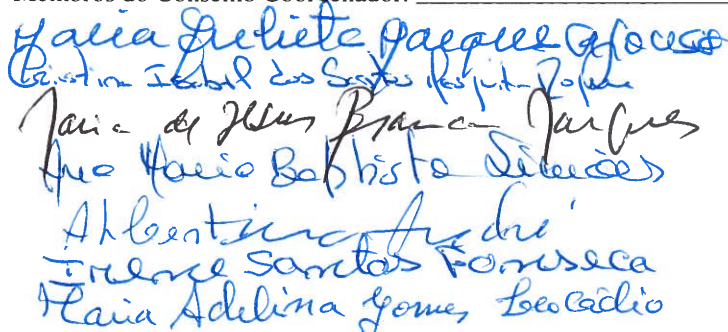 Membros do Conselho Coordenador:
Maria Julieta Marques Afonso
Cristina Isabel dos Santos
Maria de Jesus Branca Marques
Ana Maria Baptista Simões
Albertina André
Irene Santos Fonseca
Maria Adelina Gomes Leocádio